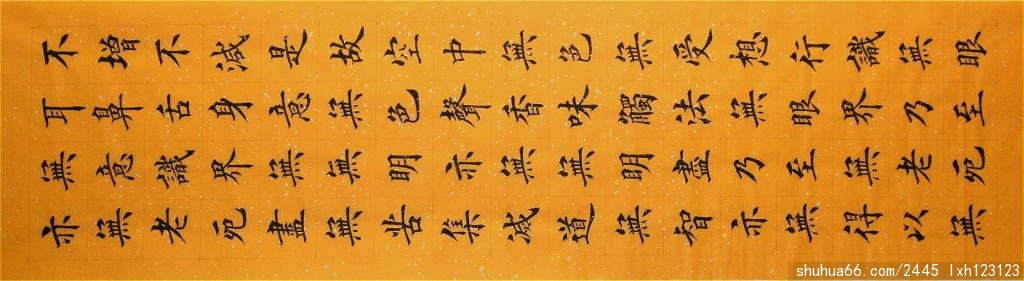 不增不減是故空中無色無受想行識無眼
耳鼻舌身意無色聲香味觸法無眼界乃至
無意識界無無明亦無無明盡乃至無老死
亦無老死盡無苦集滅道無智亦無得以無
shuhua66.com/2445 lxh123123